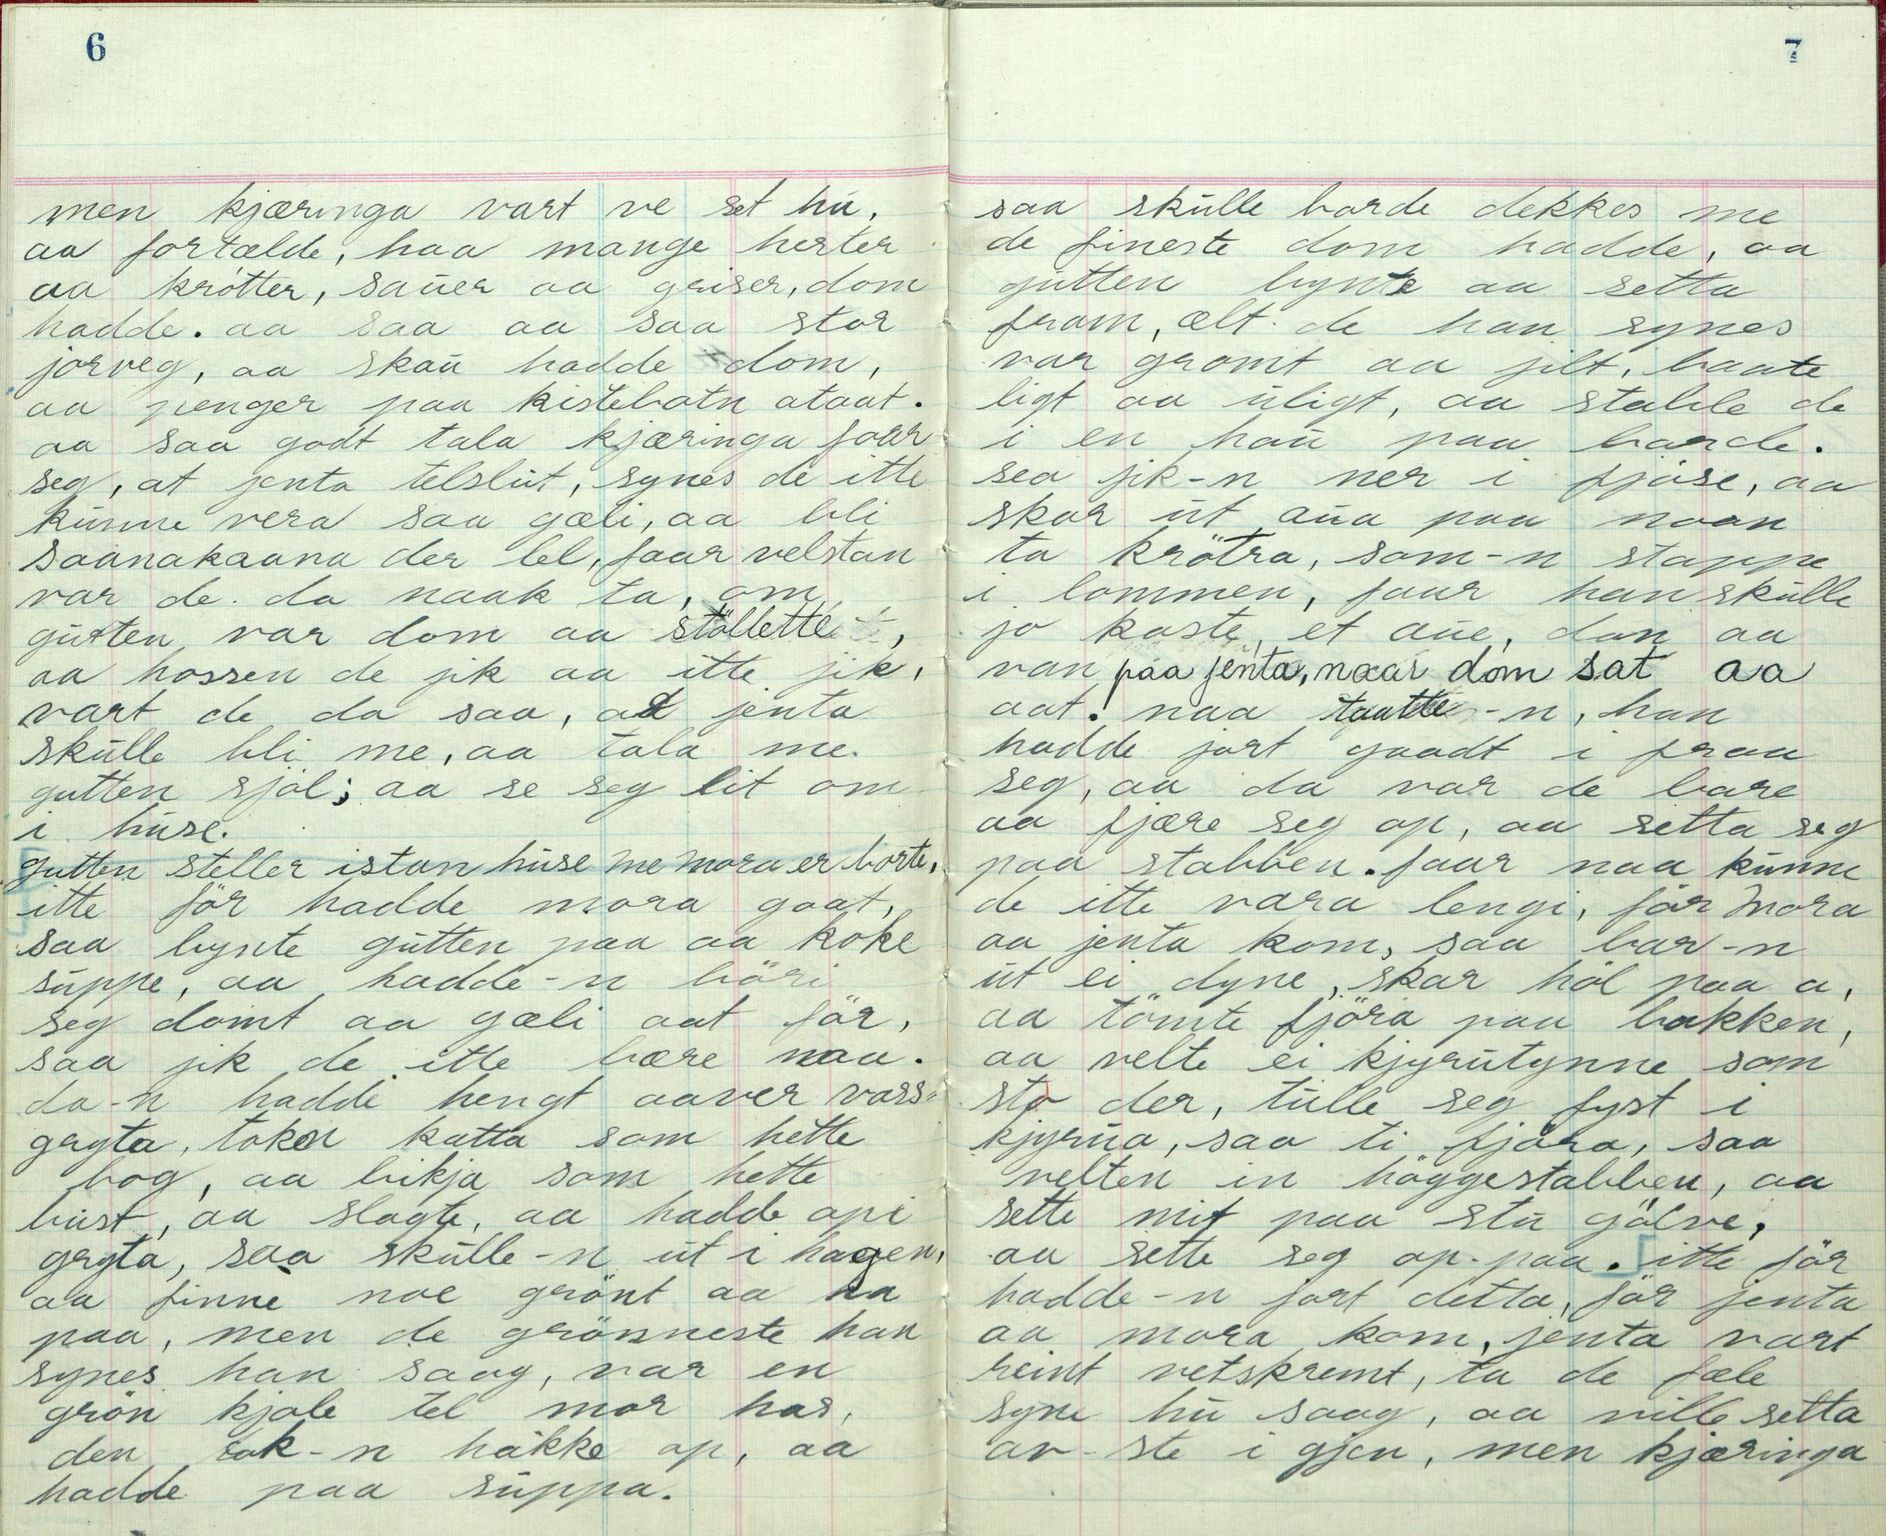 6
men kjæringa vart ve set hu,
aa fortælde, haa mange herter
aa krötter, sauer aa griser, dom
hadde. aa saa aa saa stor
jorveg, aa skau hadde dom,
aa penger paa kistebotn ataat.
aa saa godt tala kjæringa faar
seg, at jenta telslut, synes de itte
kunne vera saa gæli, aa bli
saanakaana der lel, faar velstan
var de da naak ta, om
gutten var dom aa stöllette,
aa hossen de jik aa itte jik,
vart de da saa, at jenta
skulle bli me, aa tala me
gutten sjöl; aa se seg lit om
i huse.
gutten steller istan huse me mora er borte,
itte för hadde mora gaat,
saa bynte gutten paa aa koke
suppe, aa hadde-n böri
seg domt aa gæli aat för,
saa jik de itte bære naa.
da-n hadde hengt aaver vass-
gryta, token katta som hette
bog, aa bikja som hette
bust, aa slagte, aa hadde opi
gryta, saa skulle-n ut i hagen,
aa finne noe grönt aa ha
paa, men de grönneste han
synes han saag, var en
grön kjole tel mor has,
den tok-n håkke op, aa
hadde paa suppa.
7
saa skulle borde dekkes me
de fineste dom hadde, aa
gutten bynte aa setta
fram, ælt de han synes
var gromt aa jilt, baate
ligt aa uligt, aa stable de
i en hau paa borde.
sea jik-n ner i fjöse, aa
skar ut aua paa noan
ta krötra, som-n stappe
i lommen, faar han skulle
jo kaste et aue, dan aa
van paa jenta, naar dom sat aa
aat. naa taatte-n, han
hadde jort gaadt i fraa
seg, aa da var de bare
aa fjære seg op, aa setta seg
paa stabben. faar naa kunne
de itte vara lengi, för mora
aa jenta kom, saa bar-n
ut ei dyne, skar höl paa a,
aa tömte fjöra paa bakken,
aa velte ei kjyrutynne som
sto der, tulle seg fyst i
kjyrua, saa ti fjöra, saa
velten in höggestabben, aa
sette mit paa stu gölve,
aa sette seg op paa. itte för
hadde-n jort detta, för jenta
aa mora kom, jenta vart
reint vetskremt, ta de fæle
syne hu saag, aa ville setta
av-ste i gjen, men kjæringa